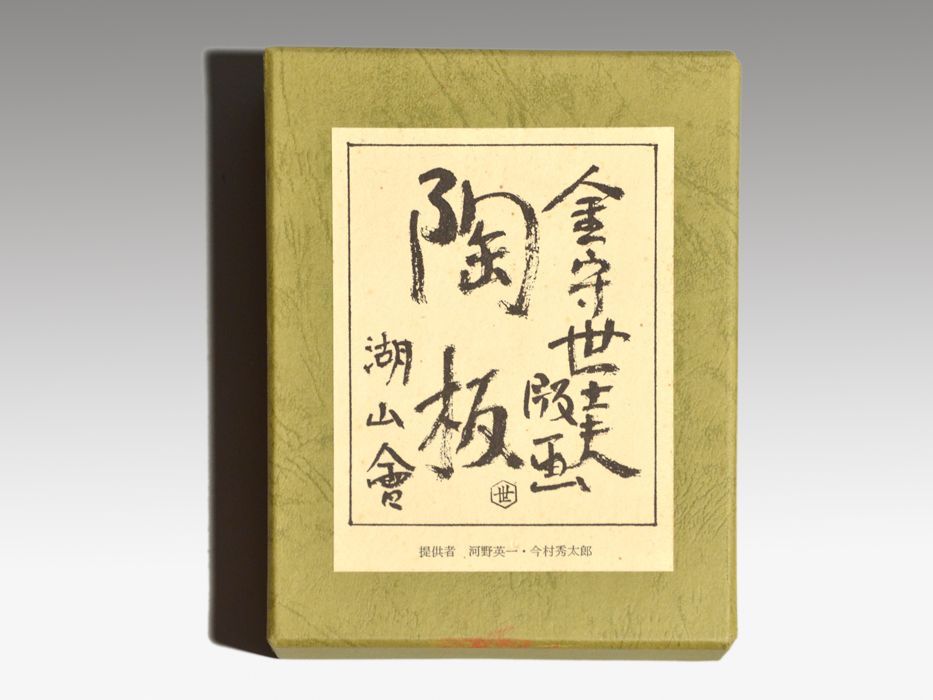 金守世士夫
版画
陶板
湖山會
世
提供者　河野英一・今村秀太郎